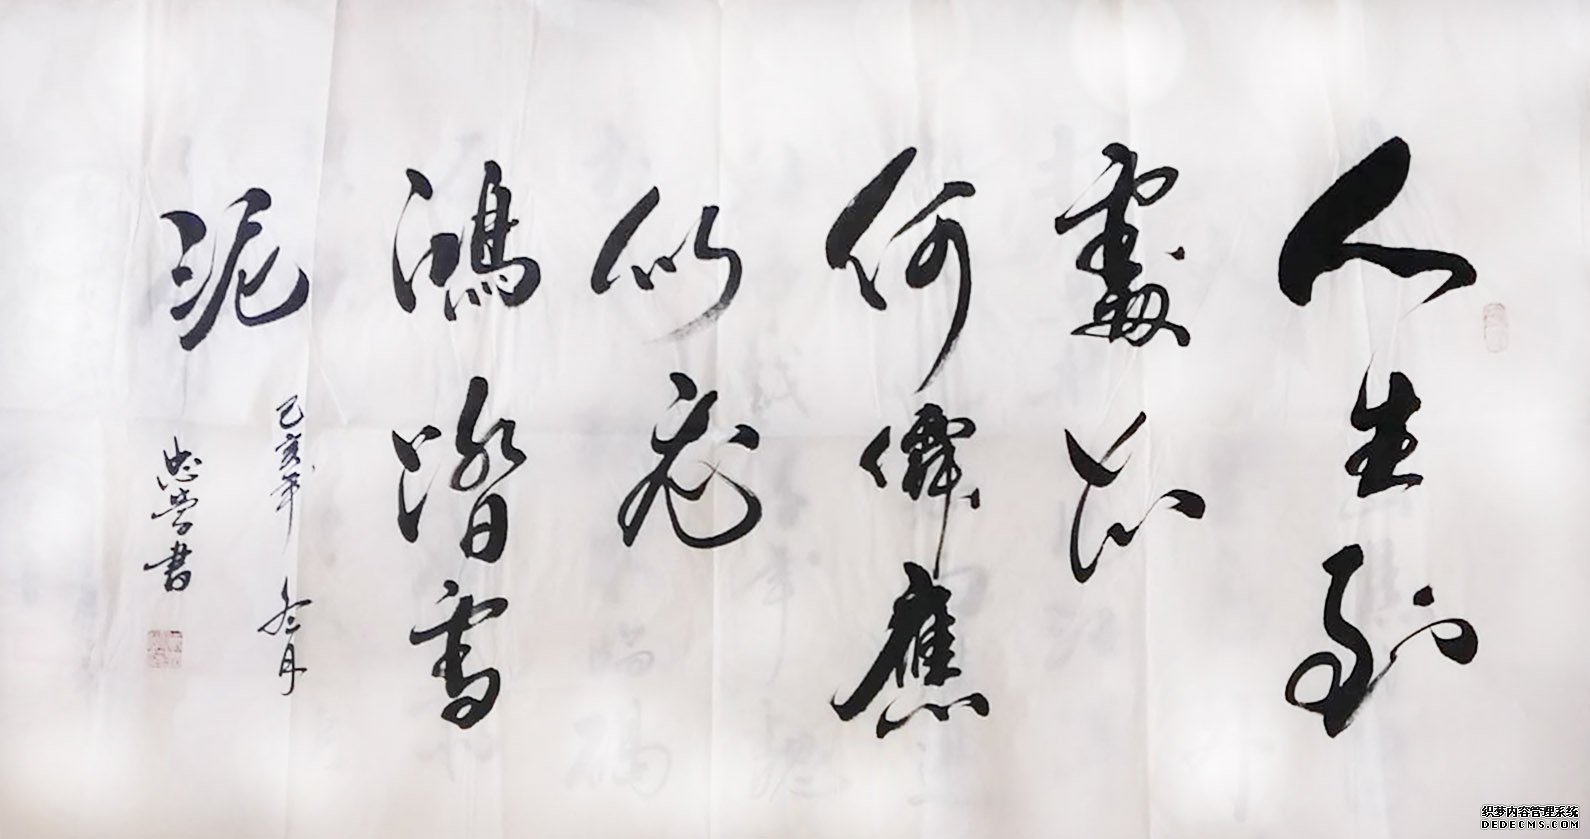 人生到
處知
何應
似飛
鴻踏雪
泥
己亥年 冬月
忠學書
织梦内容管理系统
DEDECMS.COM